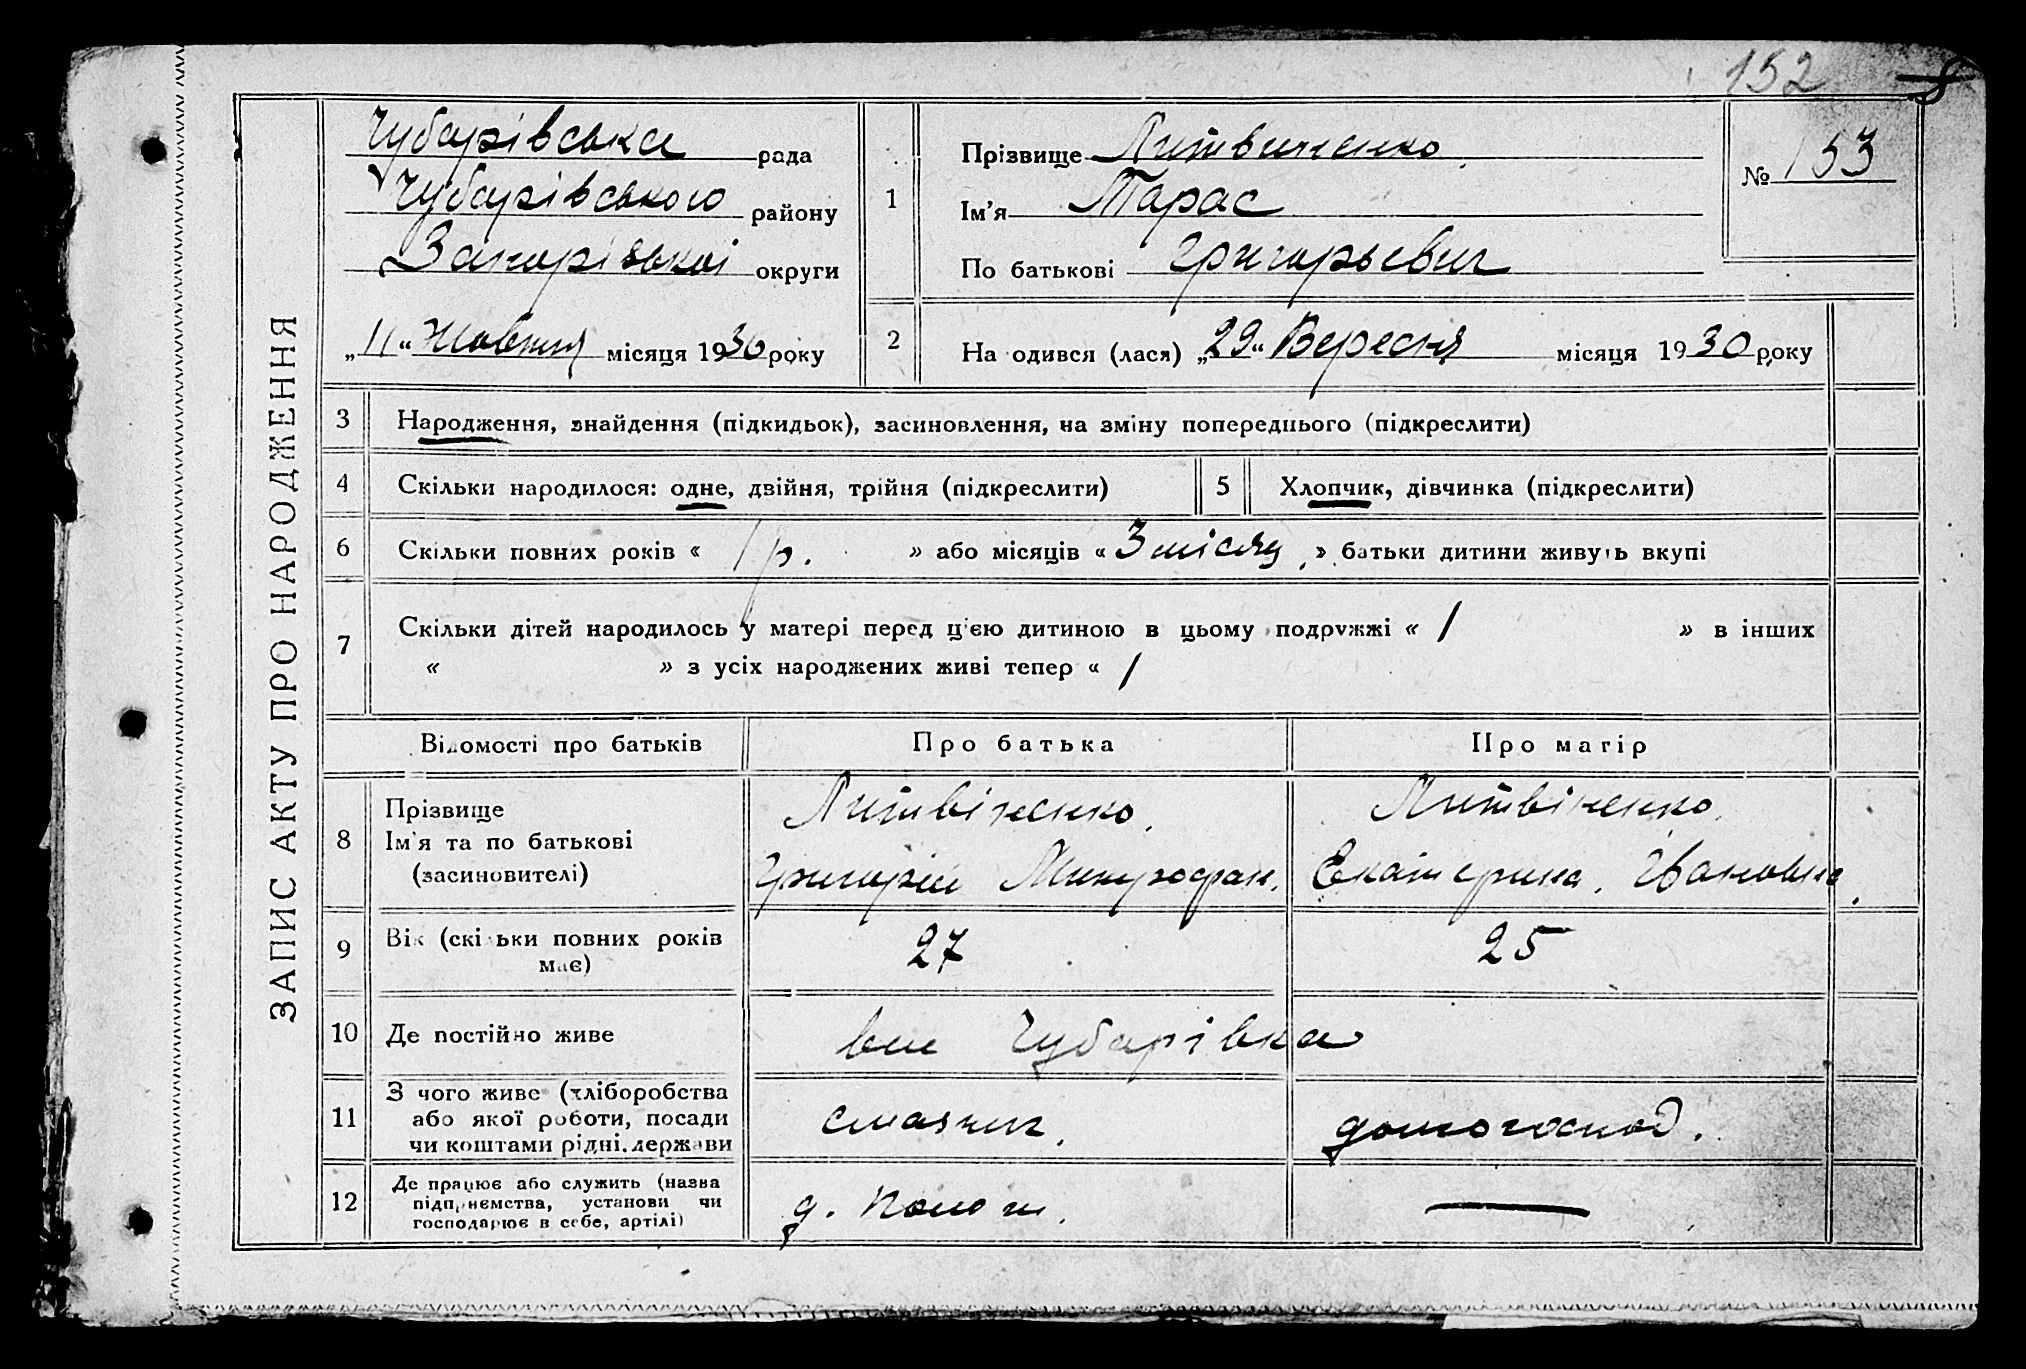 152
8
ЗАПИС АКТУ ПРО НАРОДЖЕННЯ
Чубарівська рада
Чубарівського району
Запорізької округи
„11“ Жовтня місяця 1930 року
1
Прізвище Литвиненко
Ім'я Тарас
По батькові Григорьевич
№ 153
2
На одився (лася) „29“ Вересня місяця 1930 року
3 Народження, знайдення (підкидьок), засиновлення, на зміну попереднього (підкреслити)
4 Скільки народилося: одне, двійня, трійня (підкреслити)
5 Хлопчик, дівчинка (підкреслити)
6 Скільки повних років « 1 р. » або місяців « 3 місяц » батьки дитини живуть вкупі
7 Скільки дітей народилось у матері перед цією дитиною в цьому подружжі « 1 » в інших
« » з усіх народжених живі тепер « 1
Відомості про батьків Про батька Про матір
8 Прізвище
Ім'я та по батькові
(засиновителі)
Литвіненко.
Григорій Митрофан.
Литвіненко.
Екатерина. Івановна.
9 Вік (скільки повних років
має)
27 25
10 Де постійно живе
Чубарівка
11 З чого живе (хліборобства
або якої роботи, посади
чи коштами рідні, держави
смазчик.
домогоспод.
12 Де працює або служить (назва
підприємства, установи чи
господарює в себе, артілі)
д. Пологи.